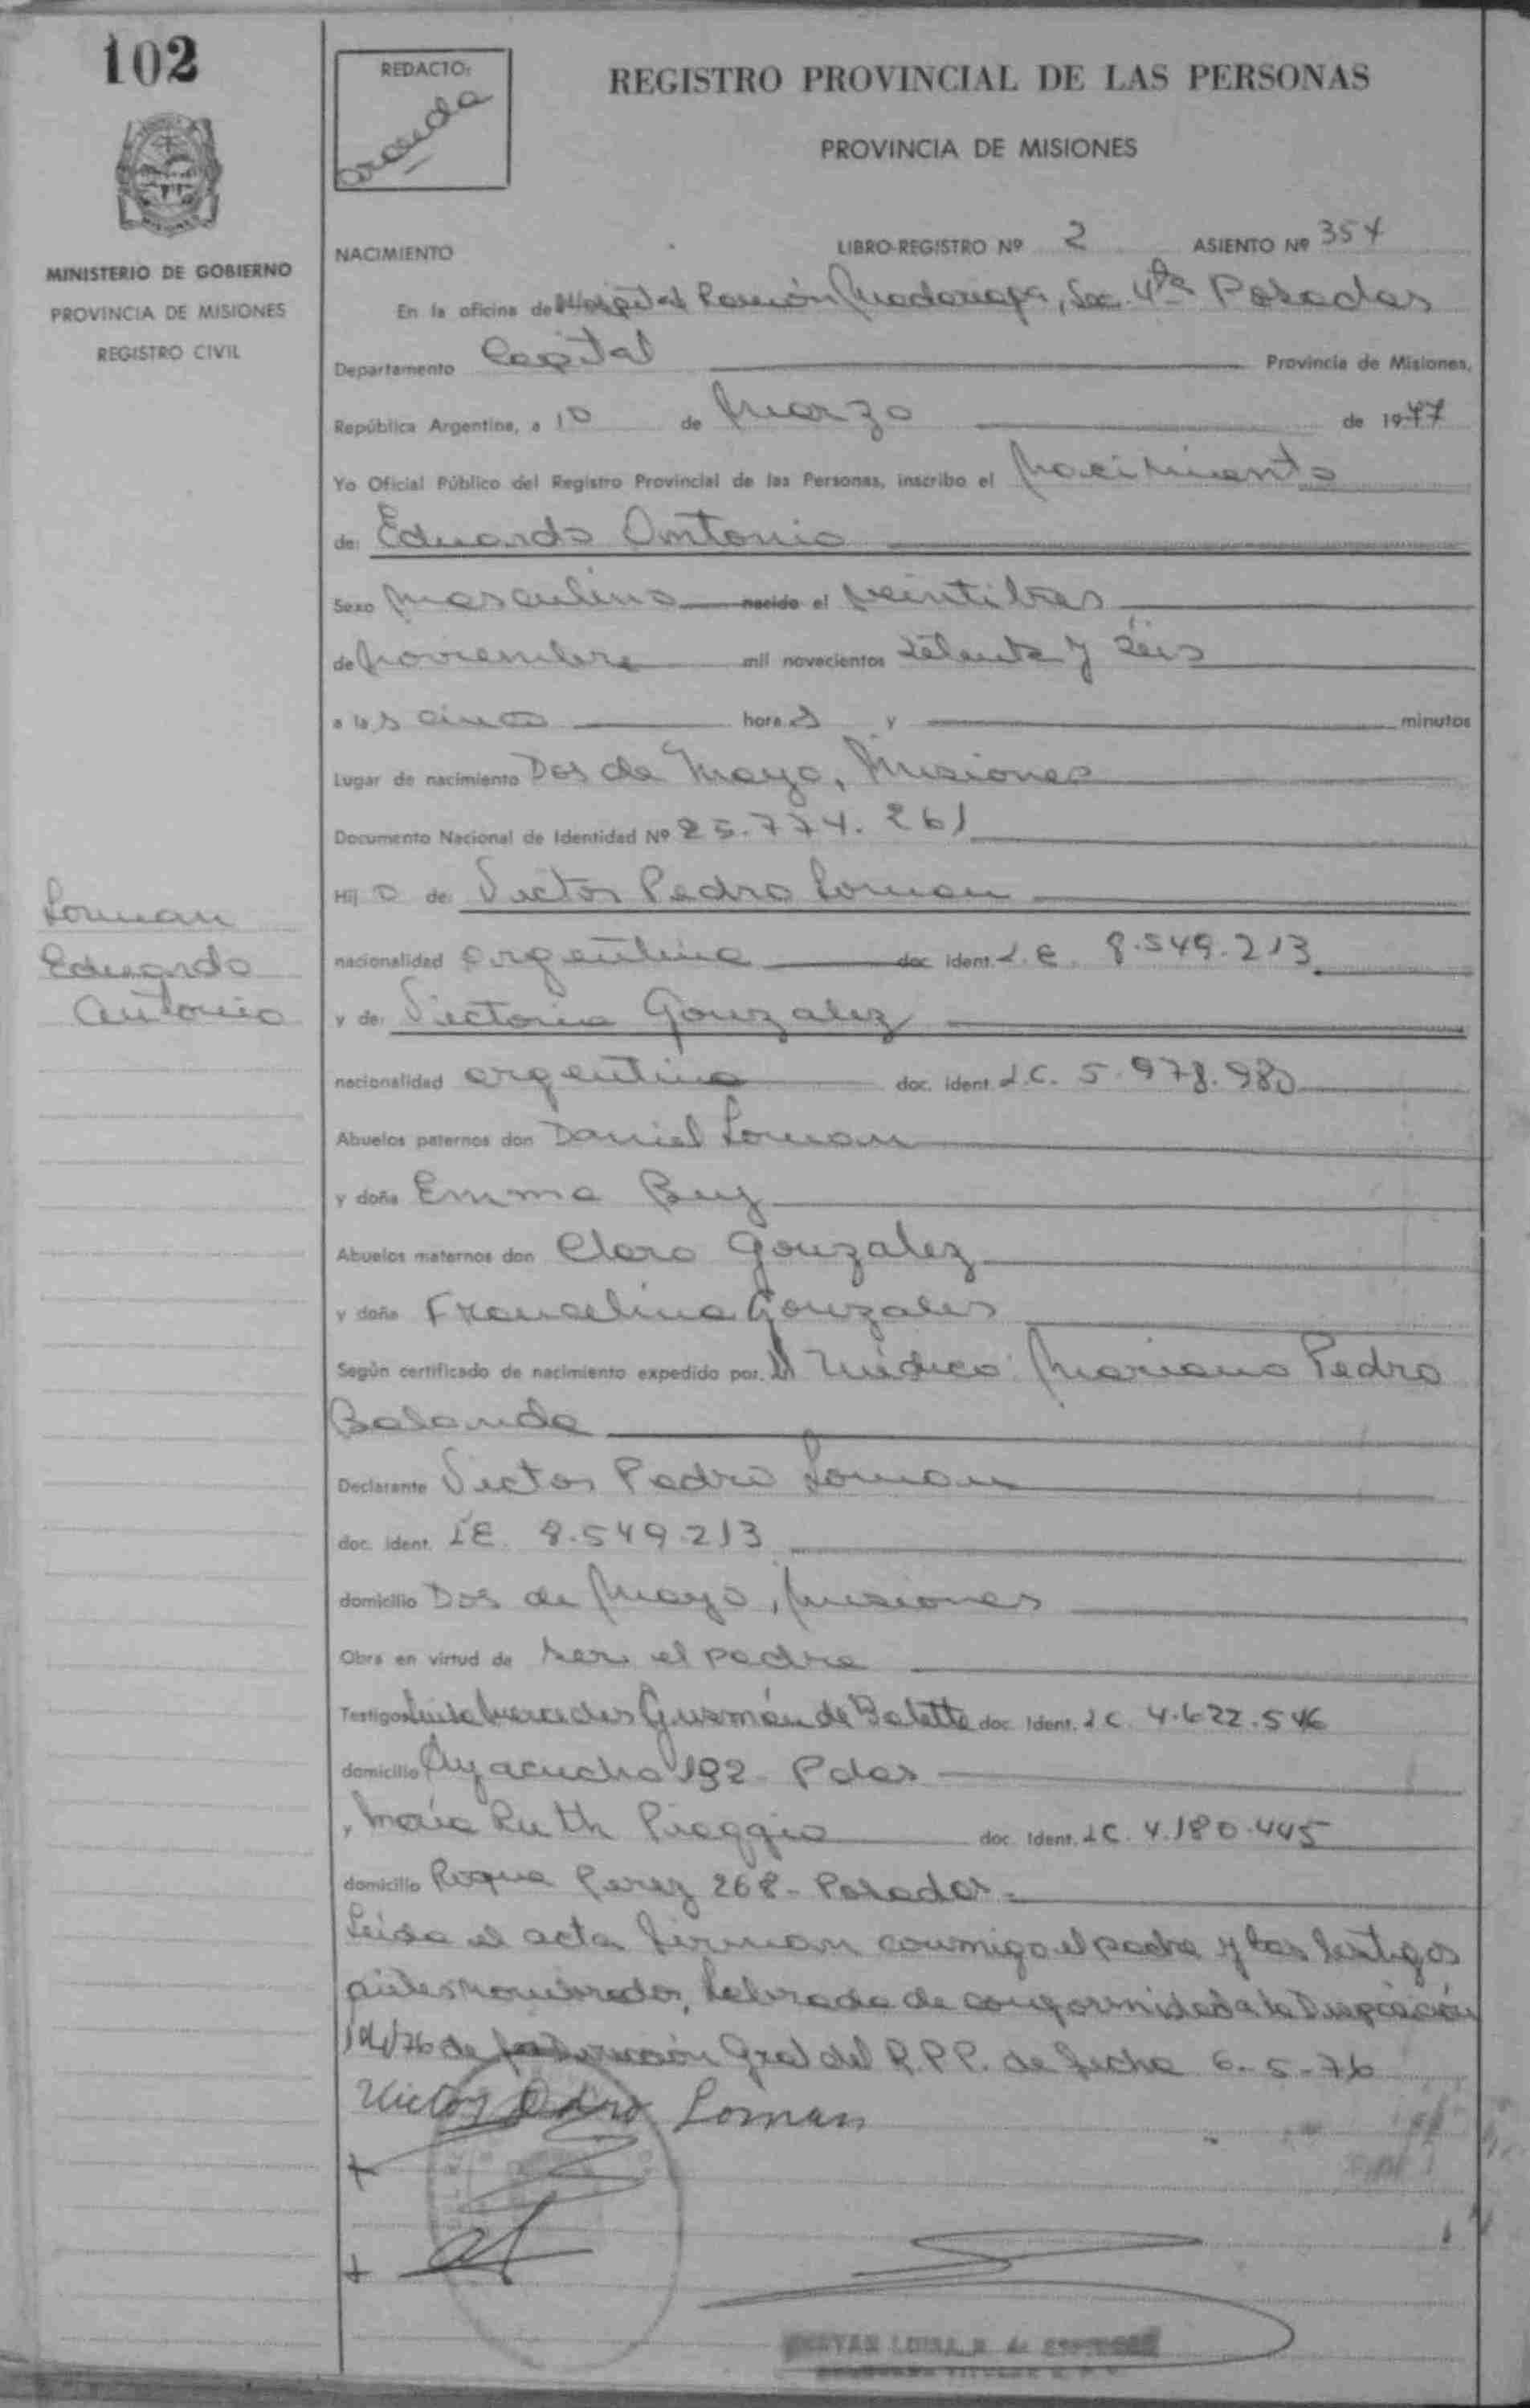 102
REDACTO:
Aranda
REGISTRO PROVINCIAL DE LAS PERSONAS
PROVINCIA DE MISIONES
MISIONES
MINISTERIO DE GOBIERNO
PROVINCIA DE MISIONES
REGISTRO CIVIL
NACIMIENTO
LIBRO-REGISTRO Nº 2 ASIENTO Nº 354
En la oficina de Hospital Ramón Madariaga, Sec. 4ta Posadas
Departamento Capital Provincia de Misiones,
República Argentina, a 10 de Marzo de 1977
Yo Oficial Público del Registro Provincial de las Personas, inscribo el Nacimiento
de: Eduardo Antonio
Sexo masculino nacido el veintitres
de noviembre mil novecientos setenta y seis
a las cinco horas y minutos
Lugar de nacimiento Dos de Mayo, Misiones
Documento Nacional de Identidad Nº 25.774.261
Hijo de: Victor Pedro Loman
nacionalidad argentina doc ident. L.E. 8.549.213
y de: Victoria Gonzalez
nacionalidad argentina doc. ident. L.C. 5.978.980
Abuelos paternos don Daniel Loman
y doña Emma Buy
Abuelos maternos don Claro Gonzalez
y doña Francelina Gonzales
Según certificado de nacimiento expedido por: el médico Mariano Pedro
Balanda
Declarante Victor Pedro Loman
doc. ident. LE. 8.549.213
domicilio Dos de Mayo, Misiones
Obra en virtud de ser el padre
Testigos Mercedes Guzmán de doc. Ident. LC. 4.622.546
domicilio Ayacucho 192 Pdas
y María Ruth Piaggio doc. Ident. LC. 4.180.445
domicilio Roque Perez 268 - Posadas.
Leida el acta firman conmigo el padre y los testigos
antes nombrados, labrada de conformidad a la Disposición
de Gral del R.P.P. de fecha 6-5-76
Victor Pedro Loman
Loman
Eduardo
Antonio